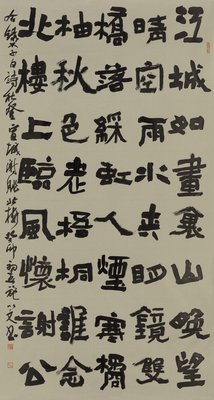 江城如畫裏山晚望
晴空兩水夾眀鏡雙
橋落綵虹人煙寒橘
柚秋色老梧桐誰念
北樓上臨風懷謝公
右錄太白詩秋登宣城謝朓北樓癸卯初夏